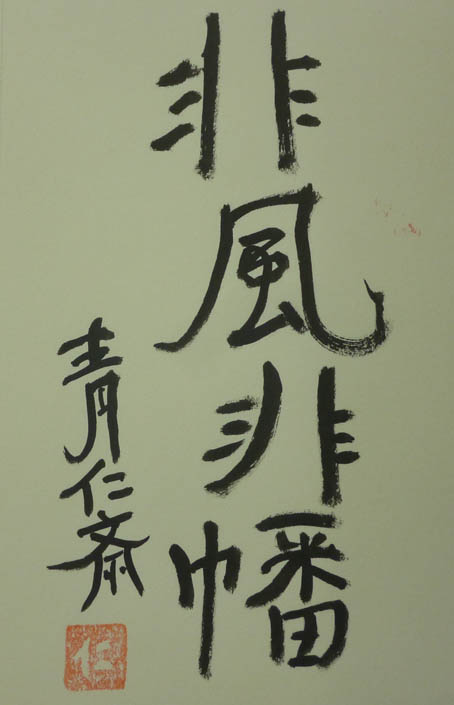 非風非幡
青仁斎
仁